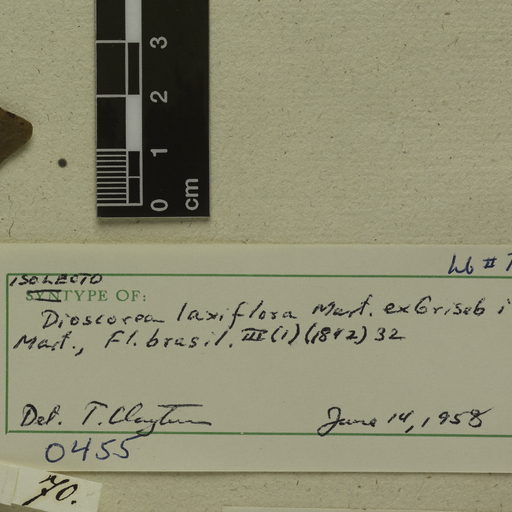 3
2
1
0
cm
Lb #
ISOLECTO
SYNTYPE OF:
Dioscorea laxiflora Mart. ex Griseb i
Mart., Fl. brasil. III (1) (1842) 32
Det. T. Clayton June 14, 1958
0455
70.